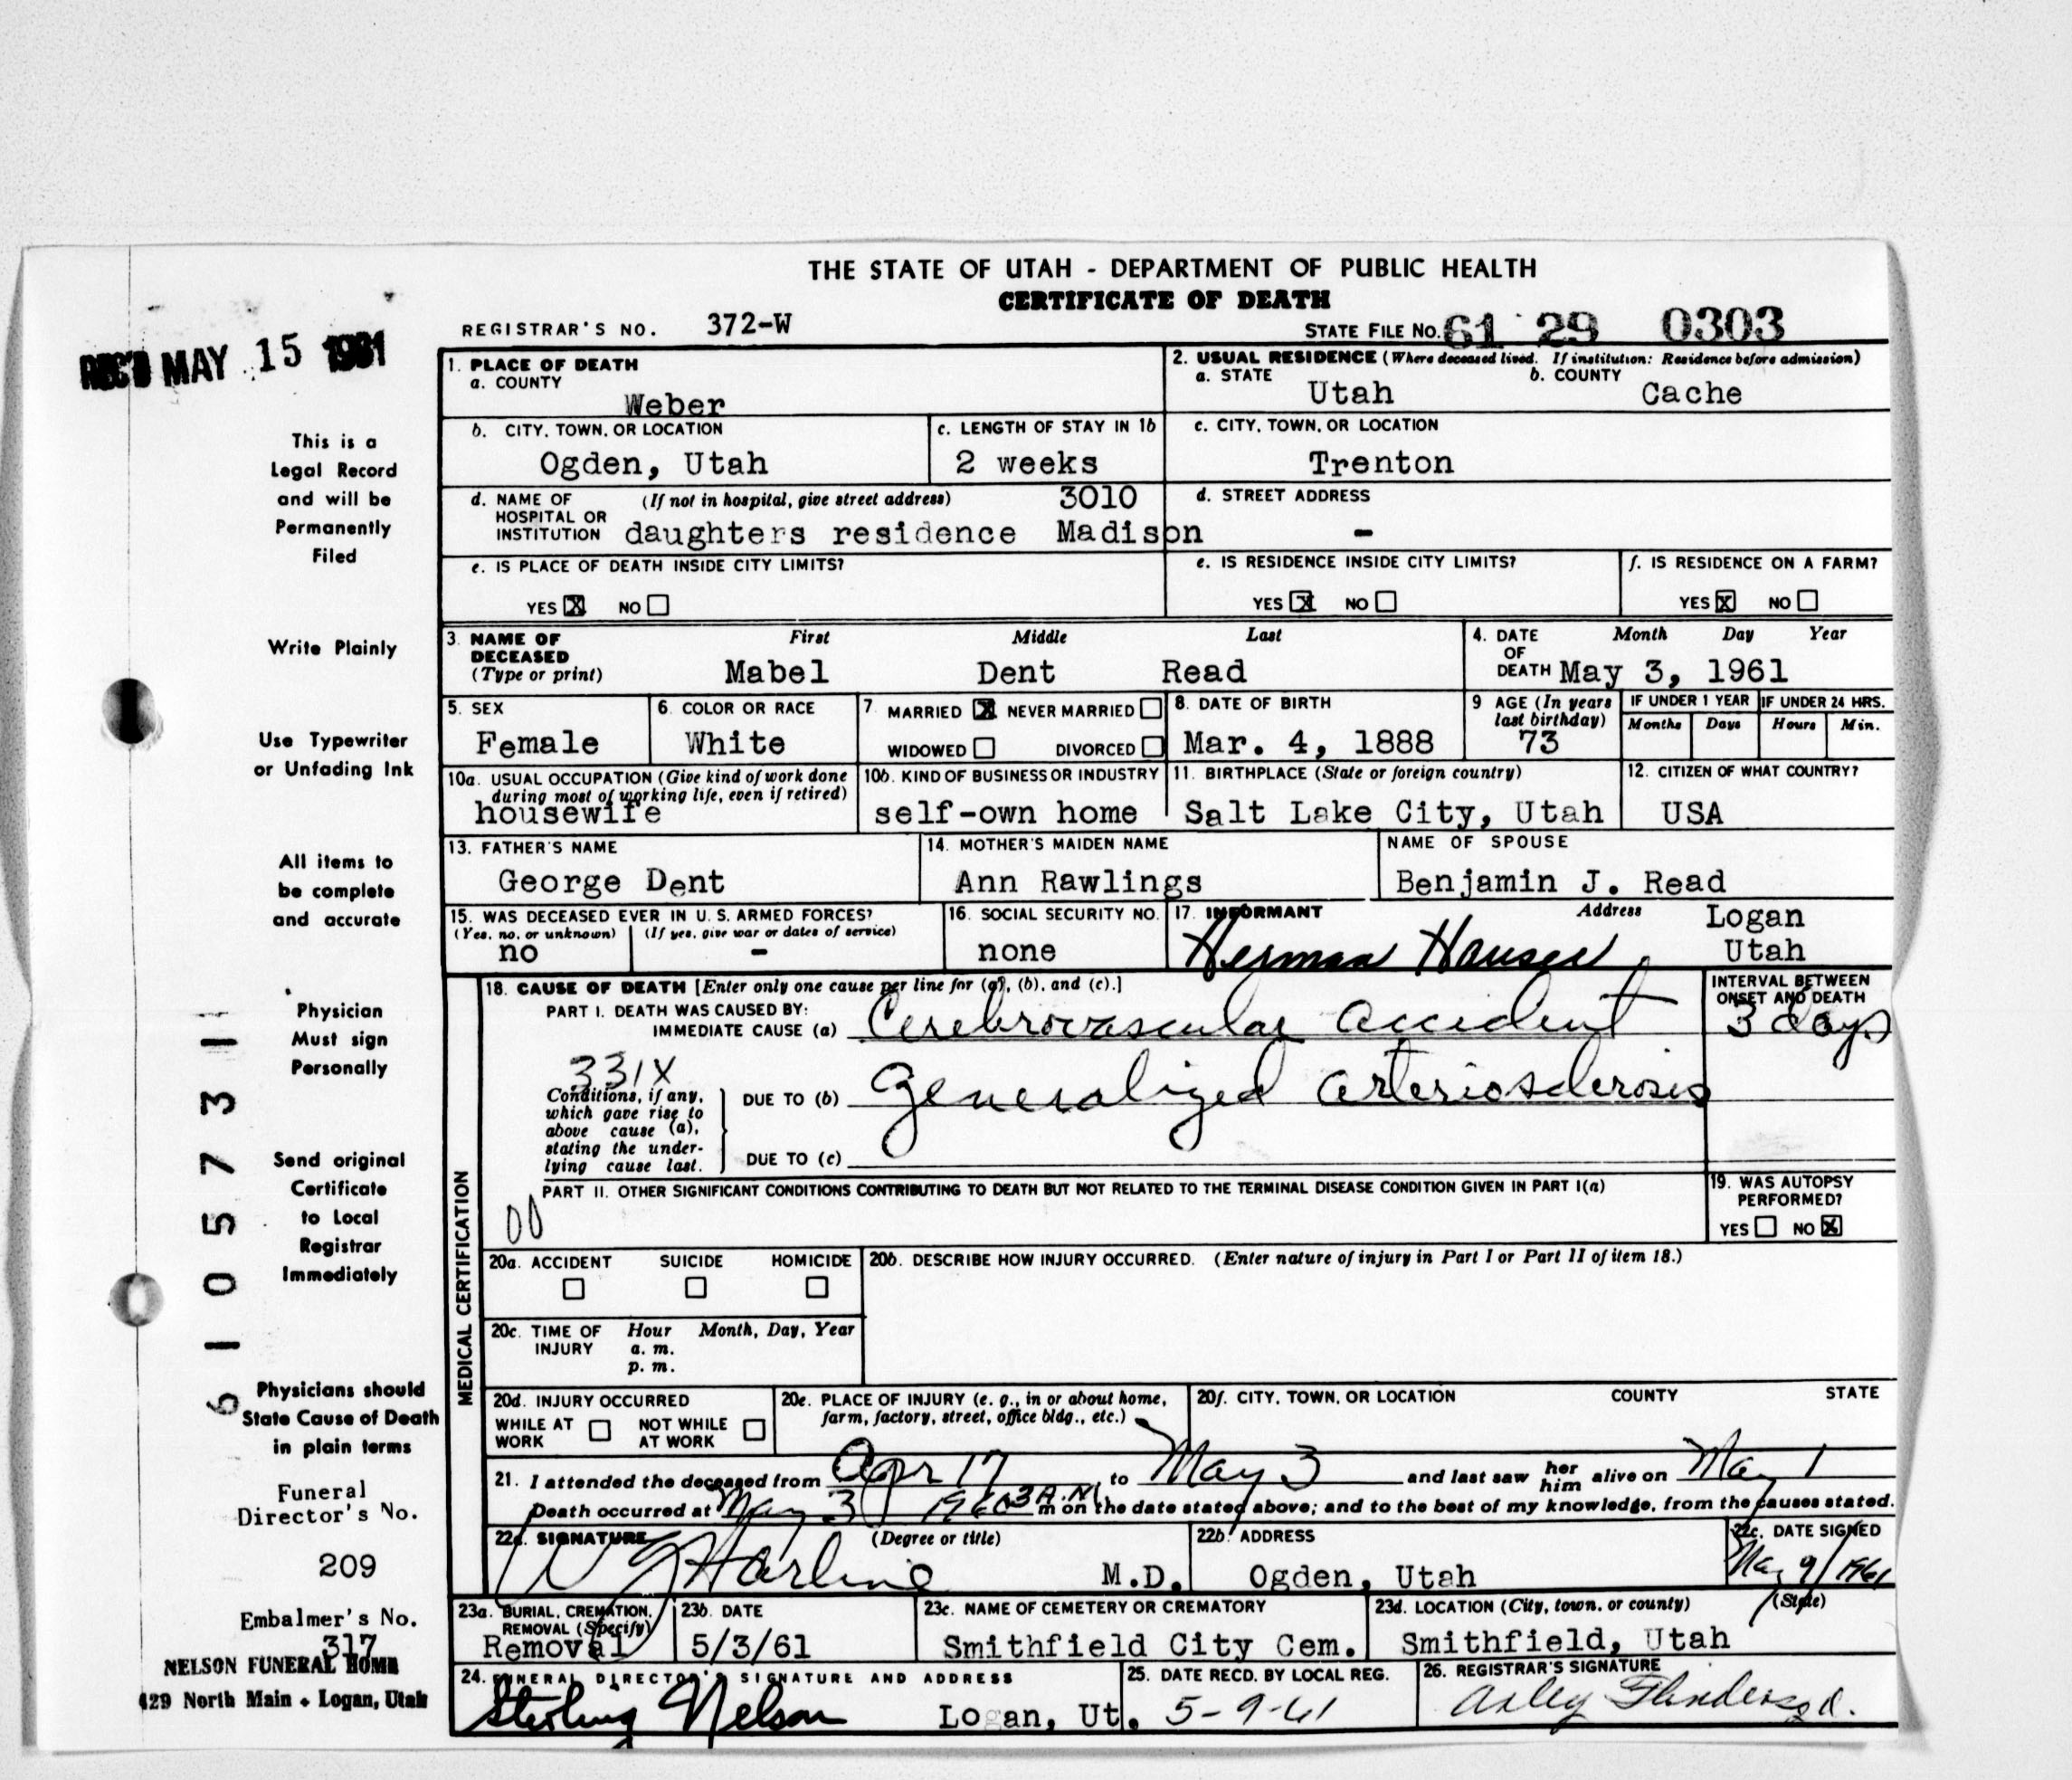 THE STATE OF UTAH - DEPARTMENT OF PUBLIC HEALTH
CERTIFICATE OF DEATH
REGISTRAR'S NO. 372-W
STATE FILE NO. 61 29 0303
REC'D MAY 15 1961
1. PLACE OF DEATH
a. COUNTY
Weber
2. USUAL RESIDENCE (Where deceased lived. If institution: Residence before admission)
a. STATE b. COUNTY
Utah Cache
b. CITY, TOWN, OR LOCATION
Ogden, Utah
c. LENGTH OF STAY IN 1b
2 weeks
c. CITY, TOWN, OR LOCATION
Trenton
d. NAME OF (If not in hospital, give street address) 3010
HOSPITAL OR
INSTITUTION daughters residence Madison
d. STREET ADDRESS
-
e. IS PLACE OF DEATH INSIDE CITY LIMITS?
YES X NO
e. IS RESIDENCE INSIDE CITY LIMITS?
YES X NO
f. IS RESIDENCE ON A FARM?
YES X NO
3. NAME OF First Middle Last
DECEASED
(Type or print) Mabel Dent Read
4. DATE Month Day Year
OF
DEATH May 3, 1961
5. SEX
Female
6. COLOR OR RACE
White
7. MARRIED X NEVER MARRIED
WIDOWED DIVORCED
8. DATE OF BIRTH
Mar. 4, 1888
9 AGE (In years
last birthday)
73
IF UNDER 1 YEAR IF UNDER 24 HRS.
Months Days Hours Min.
10a. USUAL OCCUPATION (Give kind of work done
during most of working life, even if retired)
housewife
10b. KIND OF BUSINESS OR INDUSTRY
self-own home
11. BIRTHPLACE (State or foreign country)
Salt Lake City, Utah
12. CITIZEN OF WHAT COUNTRY?
USA
13. FATHER'S NAME
George Dent
14. MOTHER'S MAIDEN NAME
Ann Rawlings
NAME OF SPOUSE
Benjamin J. Read
15. WAS DECEASED EVER IN U. S. ARMED FORCES?
(Yes, no, or unknown) (If yes, give war or dates of service)
no -
16. SOCIAL SECURITY NO.
none
17. INFORMANT Address Logan
Herman Hansen Utah
MEDICAL CERTIFICATION
18. CAUSE OF DEATH [Enter only one cause per line for (a), (b), and (c).]
INTERVAL BETWEEN
ONSET AND DEATH
PART I. DEATH WAS CAUSED BY:
IMMEDIATE CAUSE (a) Cerebrovascular accident 3 days
331X
Conditions, if any,
which gave rise to
above cause (a),
stating the under-
lying cause last.
DUE TO (b) Generalized arteriosclerosis
DUE TO (c)
PART II. OTHER SIGNIFICANT CONDITIONS CONTRIBUTING TO DEATH BUT NOT RELATED TO THE TERMINAL DISEASE CONDITION GIVEN IN PART I(a)
00
19. WAS AUTOPSY
PERFORMED?
YES NO X
20a. ACCIDENT SUICIDE HOMICIDE
20b. DESCRIBE HOW INJURY OCCURRED. (Enter nature of injury in Part I or Part II of item 18.)
20c. TIME OF Hour Month, Day, Year
INJURY a. m.
p. m.
20d. INJURY OCCURRED
WHILE AT NOT WHILE
WORK AT WORK
20e. PLACE OF INJURY (e. g., in or about home,
farm, factory, street, office bldg., etc.)
20f. CITY, TOWN, OR LOCATION COUNTY STATE
21. I attended the deceased from Apr 17, to May 3 and last saw her him alive on May 1
Death occurred at May 3 3 A.M. m on the date stated above; and to the best of my knowledge, from the causes stated.
22a. SIGNATURE (Degree or title)
Harline M.D.
22b. ADDRESS
Ogden, Utah
22c. DATE SIGNED
May 9/1961
23a. BURIAL, CREMATION,
REMOVAL (Specify)
Removal
23b. DATE
5/3/61
23c. NAME OF CEMETERY OR CREMATORY
Smithfield City Cem.
23d. LOCATION (City, town, or county) (State)
Smithfield, Utah
24. FUNERAL DIRECTOR'S SIGNATURE AND ADDRESS
Sterling Nelson Logan, Ut.
25. DATE RECD. BY LOCAL REG.
5-9-61
26. REGISTRAR'S SIGNATURE
This is a
Legal Record
and will be
Permanently
Filed
Write Plainly
Use Typewriter
or Unfading Ink
All items to
be complete
and accurate
Physician
Must sign
Personally
Send original
Certificate
to Local
Registrar
Immediately
Physicians should
State Cause of Death
in plain terms
6105731
Funeral
Director's No.
209
Embalmer's No.
317
NELSON FUNERAL HOME
429 North Main • Logan, Utah